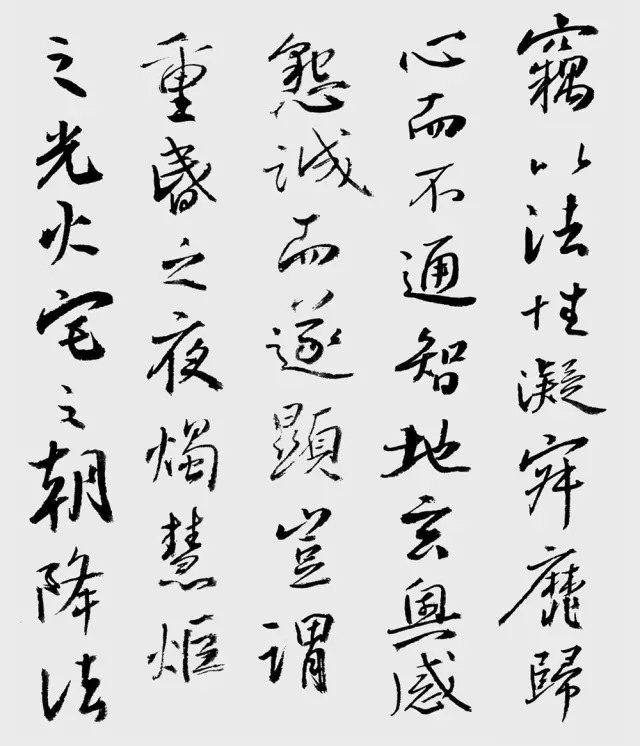 竊以法性凝寂靡歸
心而不通智地玄奧感
懇誠而遂顯豈謂
重昏之夜燭慧炬
之光火宅之朝降法